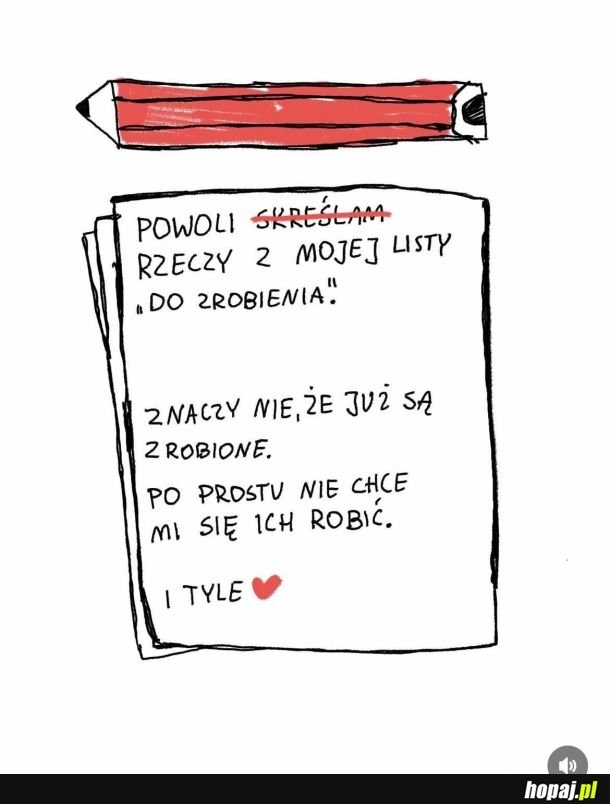 POWOLI SKREŚLAM
RZECZY Z MOJEJ LISTY
„DO ZROBIENIA".
ZNACZY NIE, ŻE JUŻ SĄ
ZROBIONE.
PO PROSTU NIE CHCE
MI SIĘ ICH ROBIĆ.
I TYLE
hopaj.pl